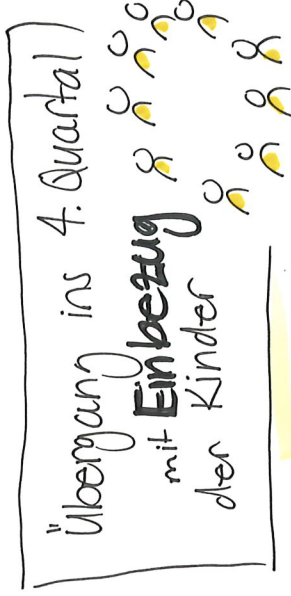 Übergang ins 4. Quartal
mit Einbezug
der Kinder